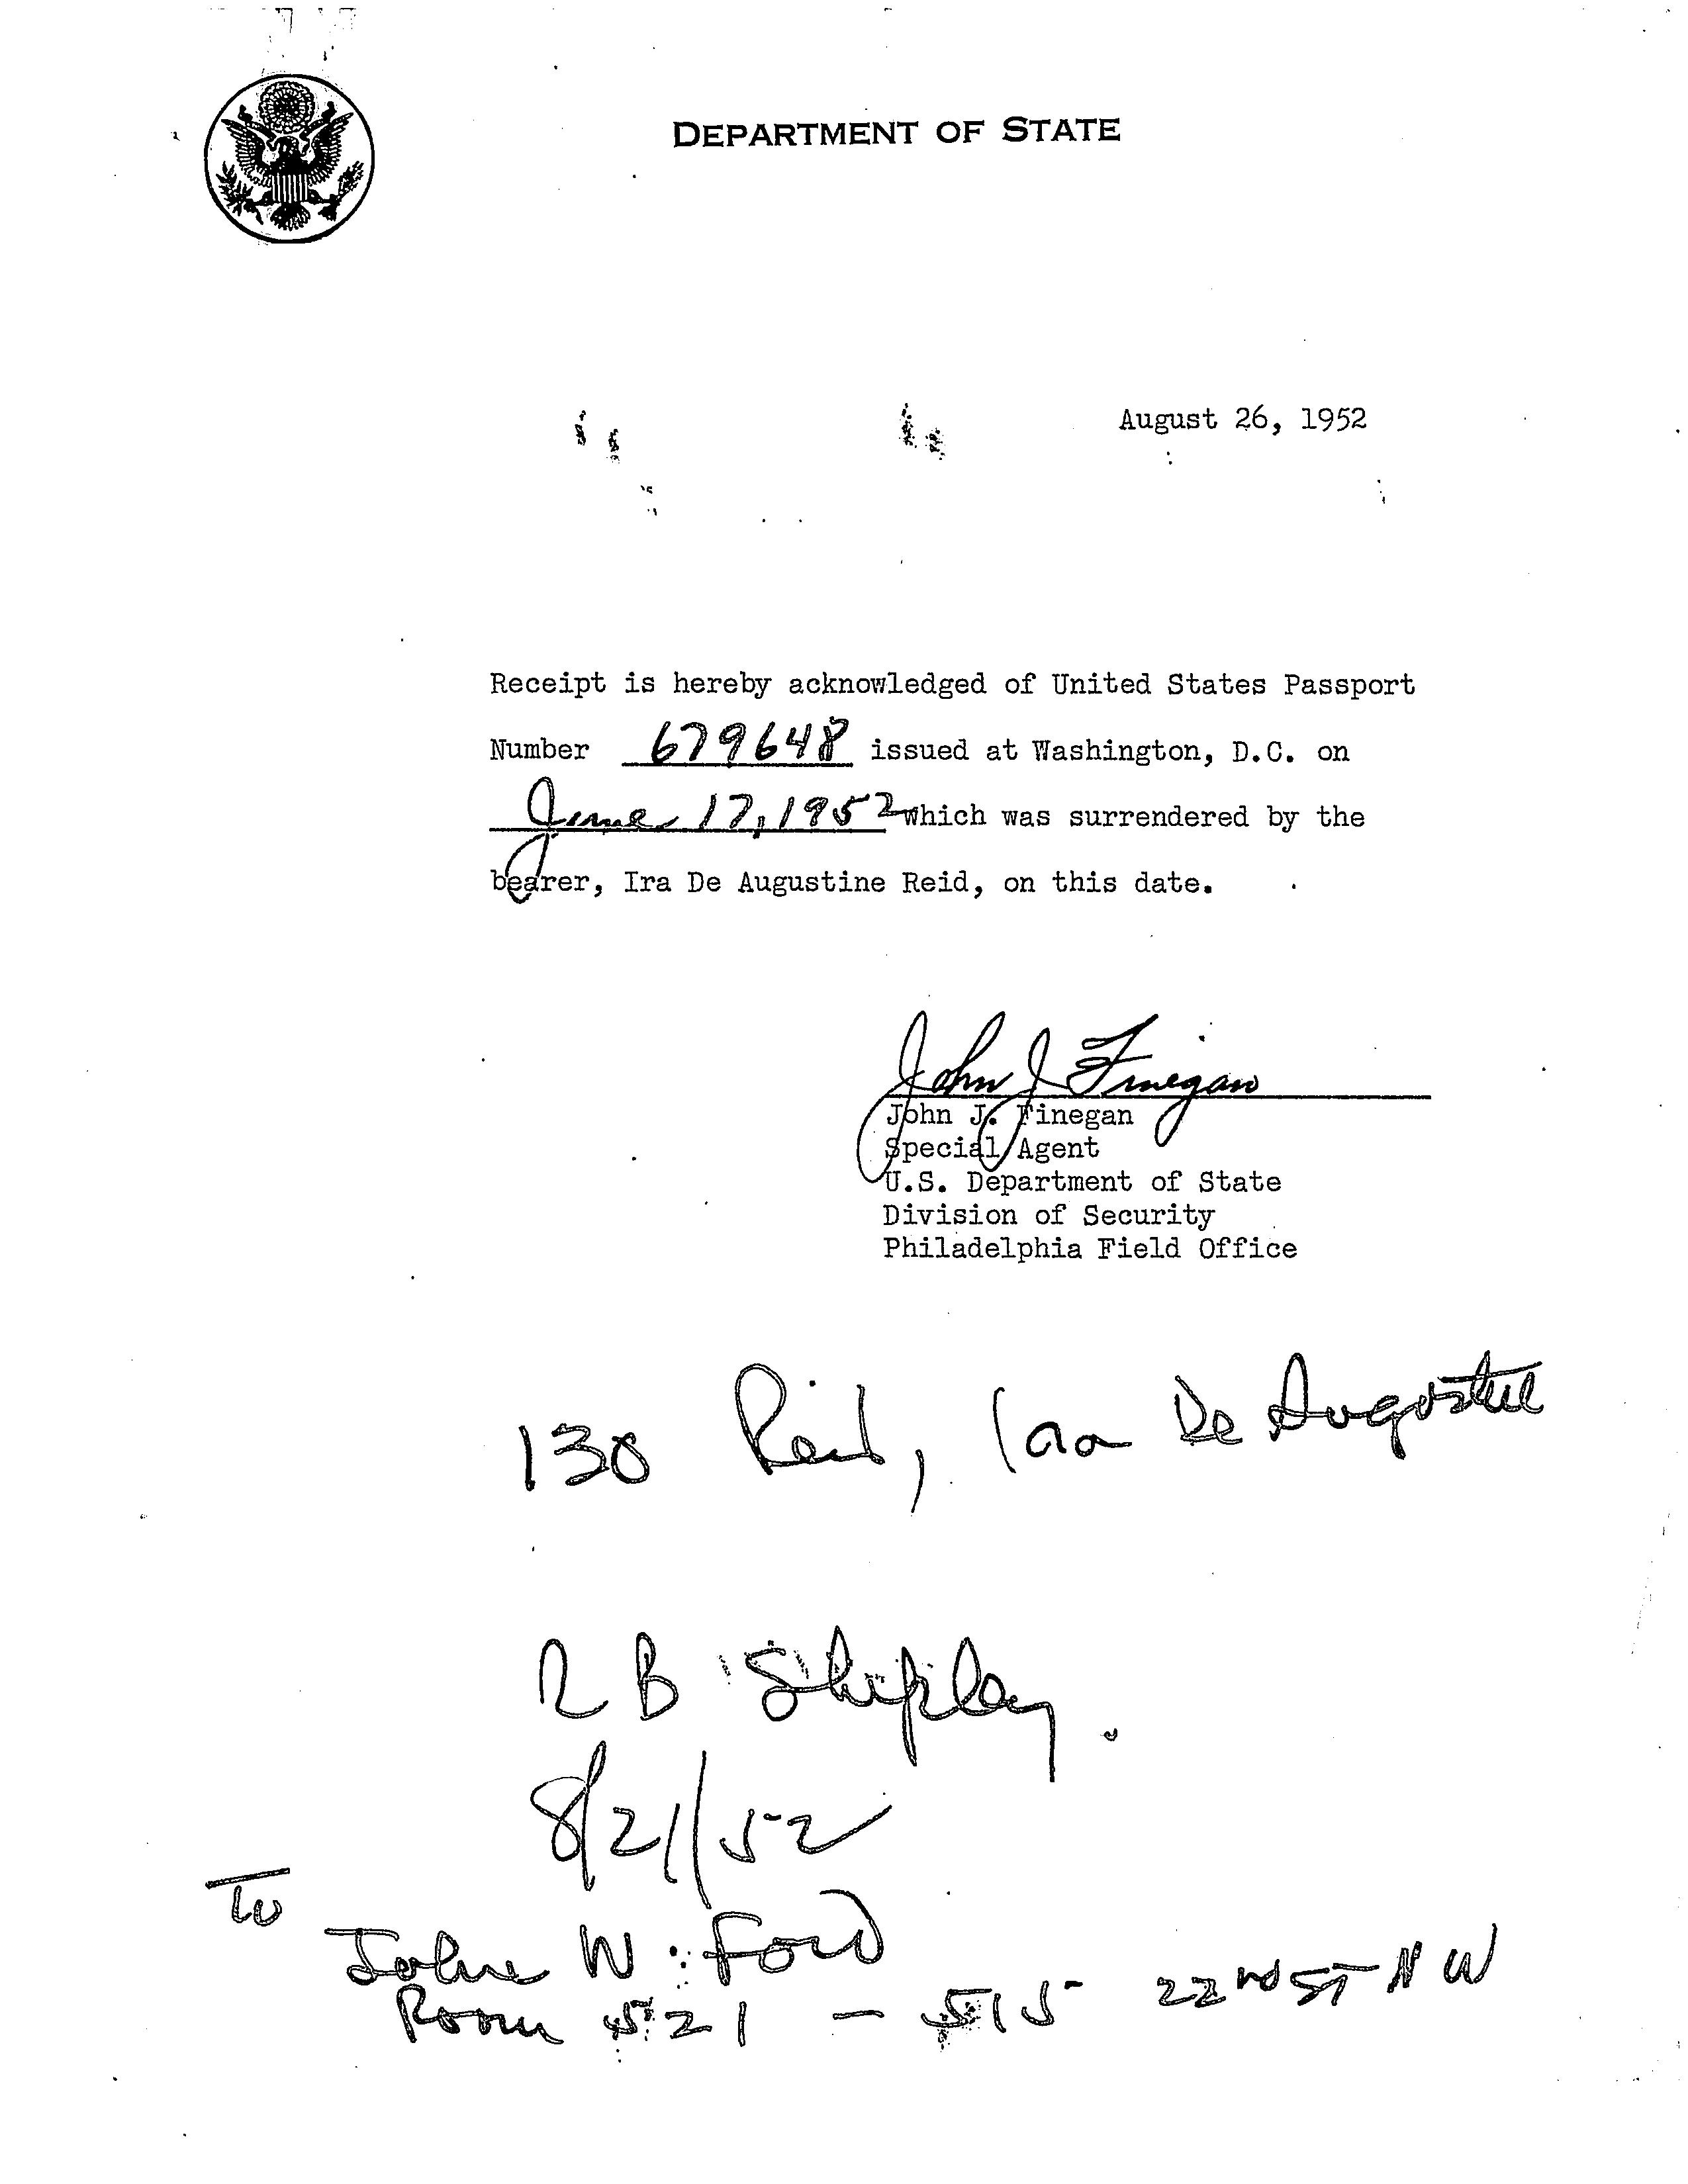 DEPARTMENT OF STATE
August 26, 1952
Receipt is hereby acknowledged of United States Passport
Number 679648 issued at Washington, D.C. on
June 17, 1952 which was surrendered by the
bearer, Ira De Augustine Reid, on this date.
John J Finegan
John J. Finegan
Special Agent
U.S. Department of State
Division of Security
Philadelphia Field Office
130 Reid, Ira De Augustine
R B Shipley.
8/21/52
To
John W. Ford
Room 521 - 515 22nd ST NW